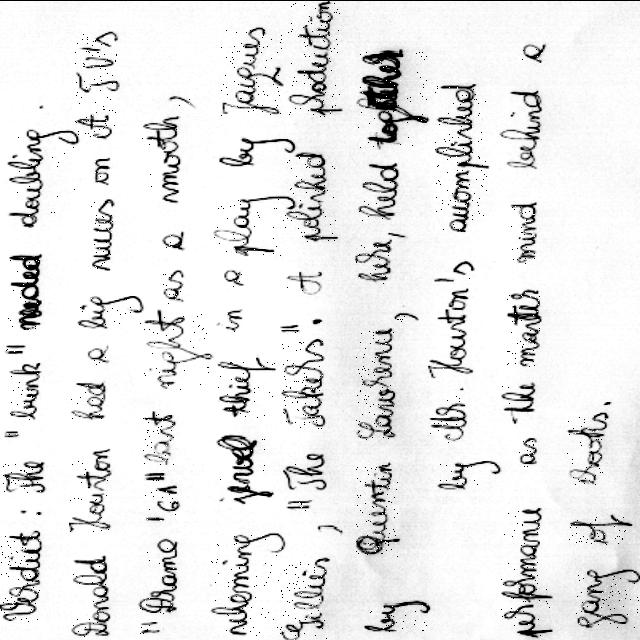 Verdict: The "bunk" needed doubling.
Donald Houston had a big succes on A TV's
"Drama '61" last night as a smooth,
reforming jewel thief in a play by Jacques
Gillies, "The Takers". A polished production
by Quentin Lawrence, here, held together
by Mr. Houston's accomplished
performance as the master mind behind a
gang of crooks.